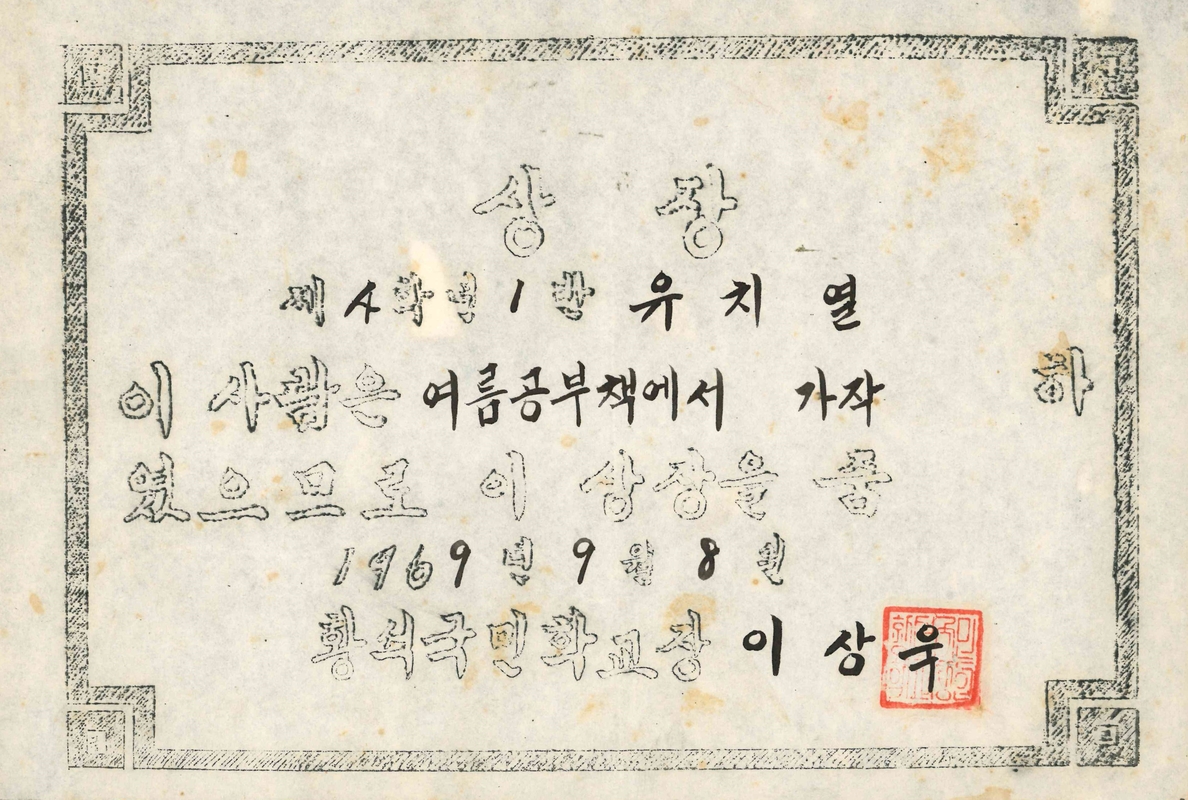 상 장
제 4 학년 1 반 유 치 열
이 사람은 여름공부책에서 가작 하
였으므로 이 상장을 줌
1969 년 9 월 8 일
황석국민학교장 이 상 욱